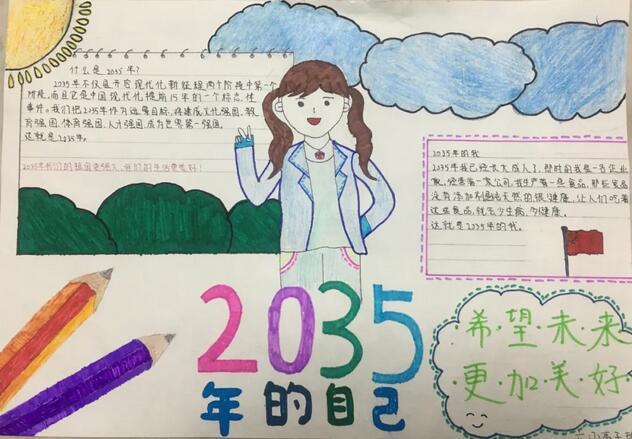 什么是2035年?
2035年不仅是开启现代化新征程两个阶段中第一个
阶段,而且它是中国现代化提前15年的一个标志性
事件。我们把2035年作为远景目标,将建成文化强国、教
育强国、体育强国、人才强国,成为世界第一强国。
这就是2035年。
2035年我们的祖国更强大,我们的生活更美好!
2035年的我
2035年我已经长大成人了,那时的我是一名企业
家,经营着一家公司,我生产着一些食品,那些食品
没有添加剂,纯天然的很健康,让人们吃着
这些食品,就会少生病,多健康。
这就是2035年的我。
2035
年的自己
希·望·未·来
·更·加·美·好·